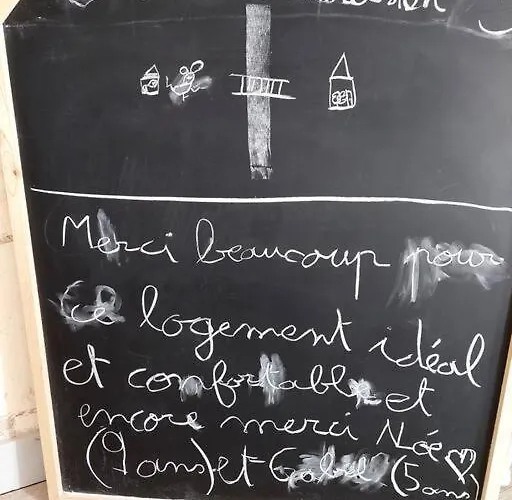 Merci beaucoup pour
ce logement idéal
et comfortable et
encore merci Noé
(9 ans) et (5 ans)